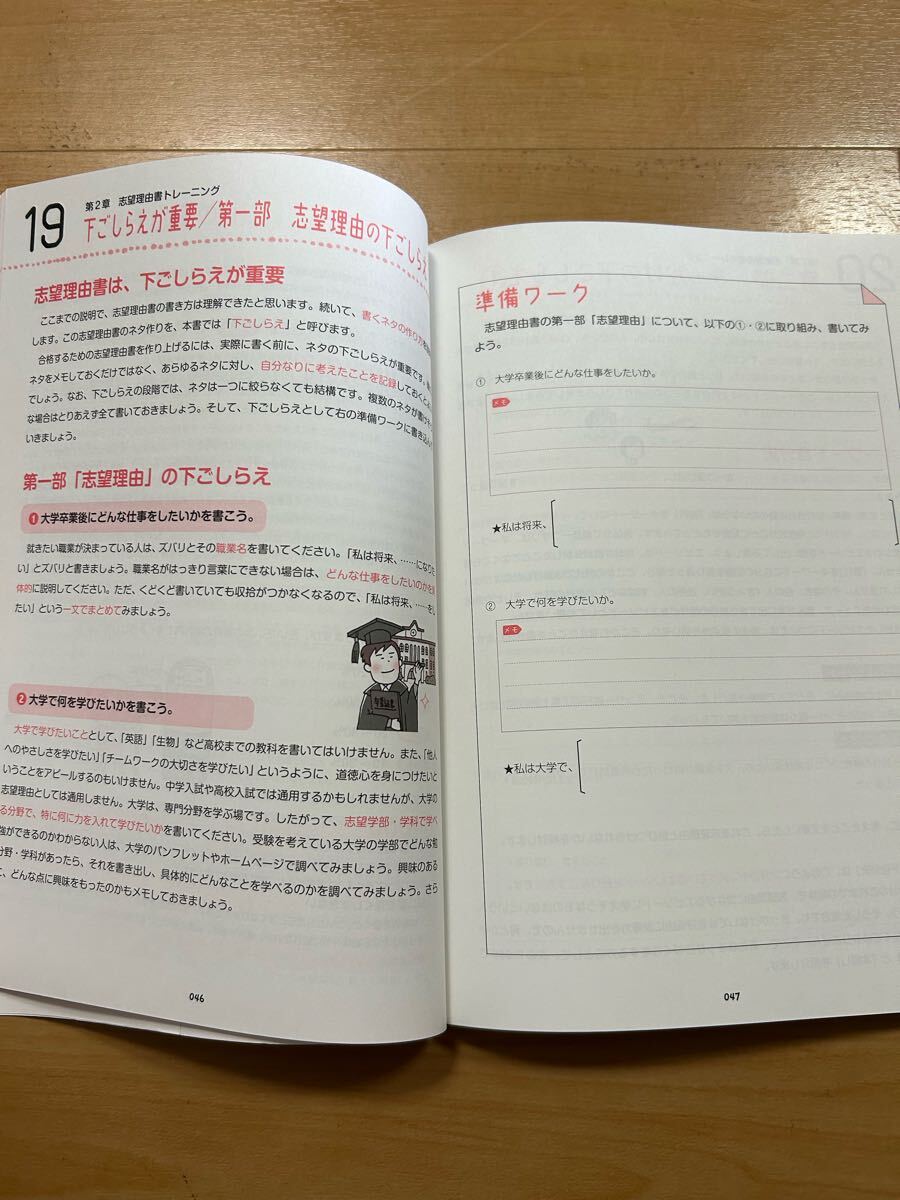 19
第2章 志望理由書トレーニング
下ごしらえが重要/第一部 志望理由の下ごしらえ
志望理由書は、下ごしらえが重要
ここまでの説明で、志望理由書の書き方は理解できたと思います。続いて、書くネタの作り方を
します。この志望理由書のネタ作りを、本書では「下ごしらえ」と呼びます。
合格するための志望理由書を作り上げるには、実際に書く前に、ネタの下ごしらえが重要です。
ネタをメモしておくだけではなく、あらゆるネタに対し、自分なりに考えたことを記録しておくとよ
でしょう。なお、下ごしらえの段階では、ネタは一つに絞らなくても結構です。複数のネタが書けそ
な場合はとりあえず全て書いておきましょう。そして、下ごしらえとして右の準備ワークに書き込んで
いきましょう。
第一部「志望理由」の下ごしらえ
❶ 大学卒業後にどんな仕事をしたいかを書こう。
就きたい職業が決まっている人は、ズバリとその職業名を書いてください。「私は将来、……になりた
い」とズバリと書きましょう。職業名がはっきり言葉にできない場合は、どんな仕事をしたいのかを具
体的に説明してください。ただ、くどくど書いていても収拾がつかなくなるので、「私は将来、……をし
たい」という一文でまとめてみましょう。
卒業証書
❷ 大学で何を学びたいかを書こう。
大学で学びたいこととして、「英語」「生物」など高校までの教科を書いてはいけません。また、「他人
へのやさしさを学びたい」「チームワークの大切さを学びたい」というように、道徳心を身につけたいと
いうことをアピールするのもいけません。中学入試や高校入試では通用するかもしれませんが、大学の
志望理由としては通用しません。大学は、専門分野を学ぶ場です。したがって、志望学部・学科で学べ
る分野で、特に何に力を入れて学びたいかを書いてください。受験を考えている大学の学部でどんな勉
強ができるのかわからない人は、大学のパンフレットやホームページで調べてみましょう。興味のある
分野・学科があったら、それを書き出し、具体的にどんなことを学べるのかを調べてみましょう。さら
に、どんな点に興味をもったのかもメモしておきましょう。
046
準備ワーク
志望理由書の第一部「志望理由」について、以下の①・②に取り組み、書いてみ
よう。
① 大学卒業後にどんな仕事をしたいか。
メモ
★私は将来、
② 大学で何を学びたいか。
メモ
★私は大学で、
047